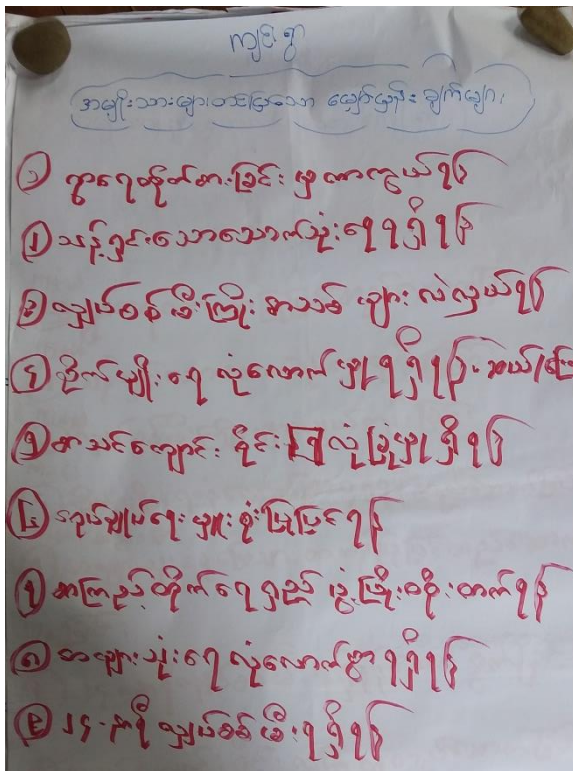 ကျင်းရွာ
အမျိုးသားများတင်ပြသော မျှော်မှန်း ချက်များ
၁ ရွာရေတိုက်စားခြင်း မှ ကာကွယ်ရန်
၂ သန့်ရှင်းသောသောက်သုံးရေရရှိရန်
၃ လျှပ်စစ် မီးကြိုး စာသစ် များ လဲလှယ်ရန်
၄ စိုက်ပျိုး ရေ လုံလောက်မှု ရရှိရန်
၅ စာသင်ကျောင်း ဝိုင်း လုံခြုံမှု ရှိရန်
၆ အုပ်ချုပ်ရေးမှူး ရုံး ပြုပြင်ရန်
၇ စာကြည့်တိုက် ရေရှည် ဖွံ့ဖြိုး တိုးတက်ရန်
၈ တများသုံးရေ လုံလောက်စွာ ရရှိရန်
၉ ၂၄-နာရီ လျှပ်စစ် မီး ရရှိရန်